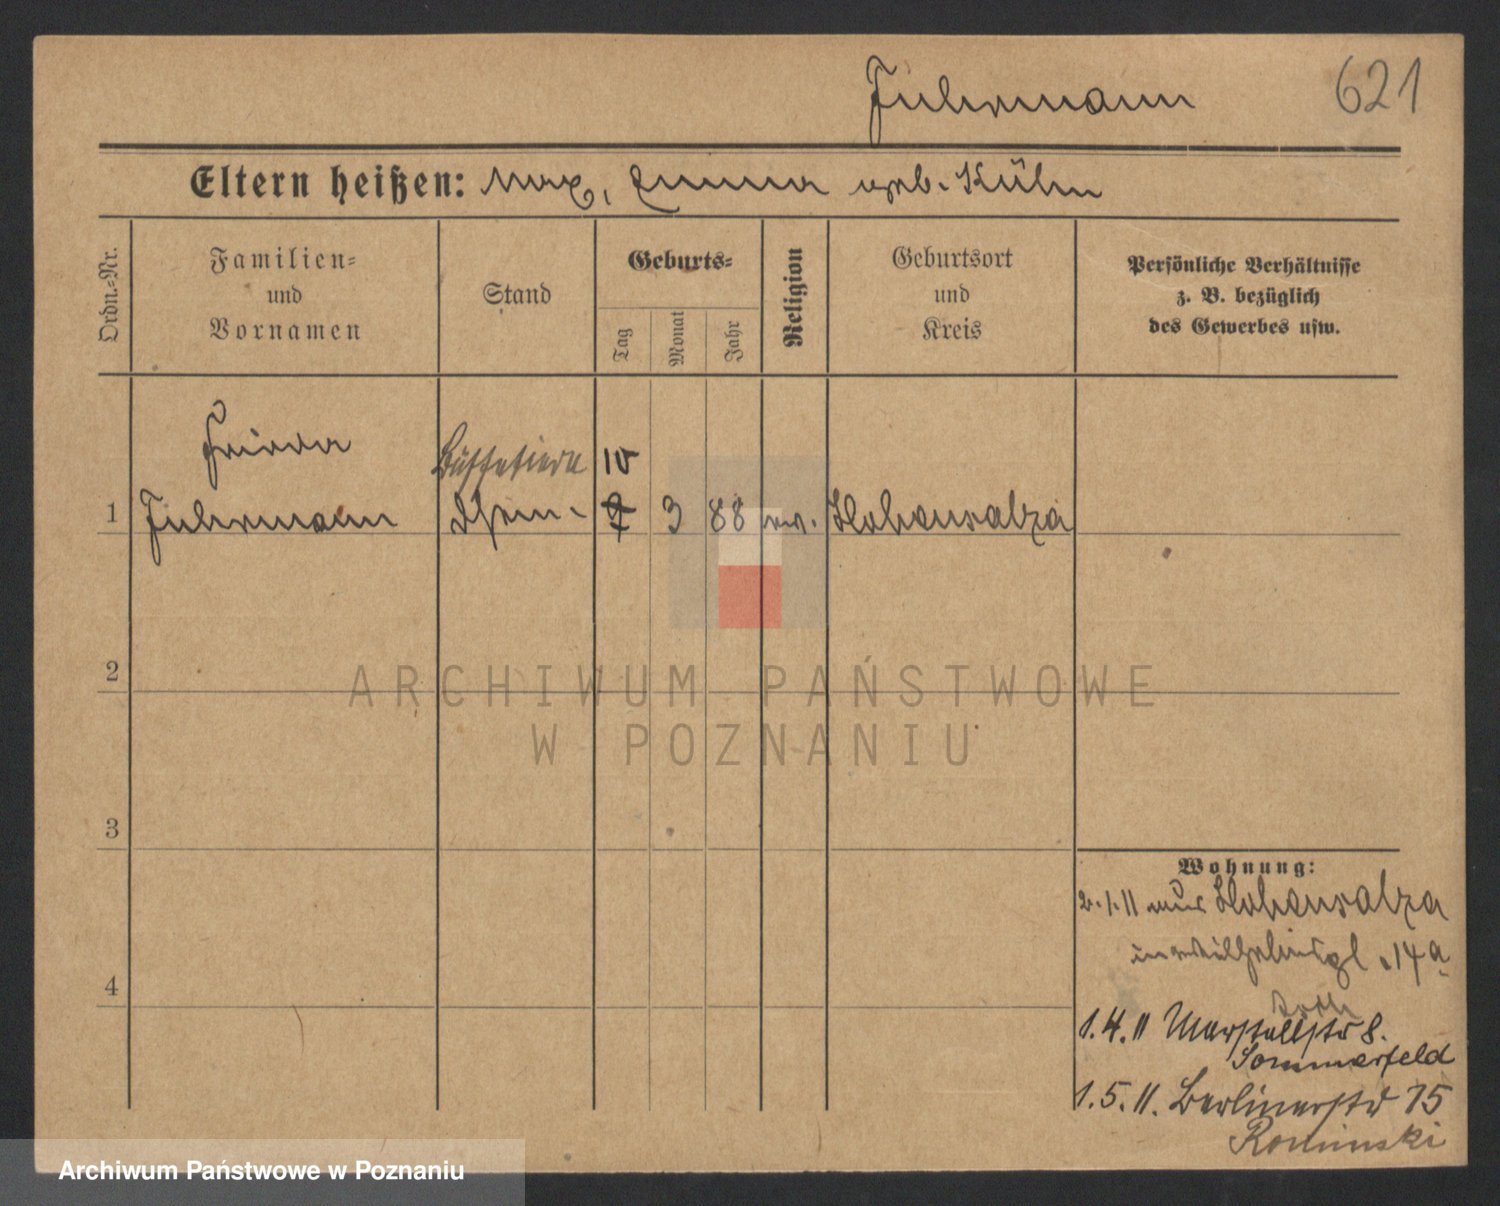 Fuhrmann 621
Eltern heißen: Max, Emma geb. Kühn
Ordn.=Nr.
Familien=
und
Vornamen
Stand
Geburts=
Tag
Monat
Jahr
Religion
Geburtsort
und
Kreis
Persönliche Verhältnisse
z. B. bezüglich
des Gewerbes usw.
Büffetiere 10
1 Fuhrmann 7 3 88 Hohensalza
2
3
4
Wohnung:
2.1.11 aus Hohensalza
14a
1.4.11 Marstallstr 8.
Sommerfeld
1.5.11. Berlinerstr 15
Rominski
ARCHIWUM PAŃSTWOWE
W POZNANIU
Archiwum Państwowe w Poznaniu